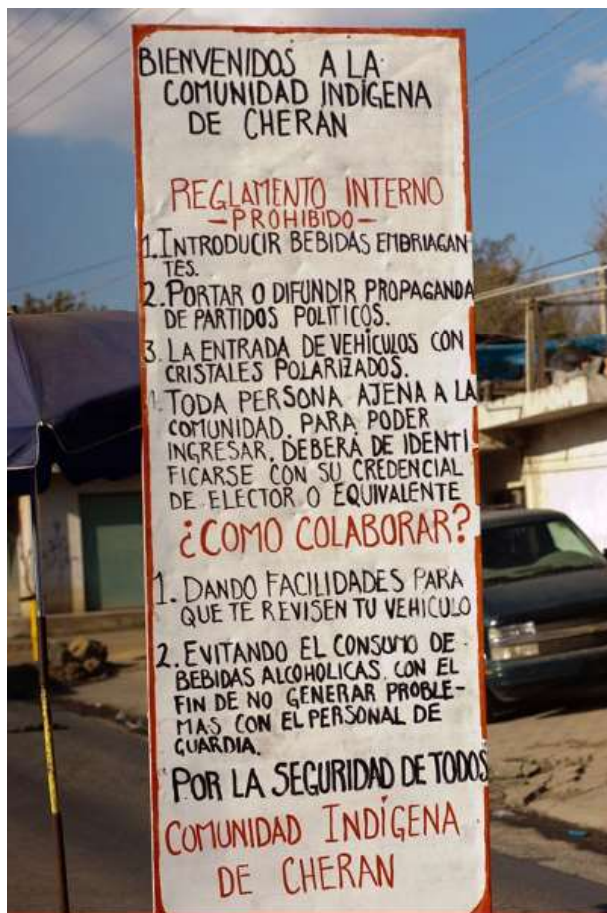 BIENVENIDOS A LA
COMUNIDAD INDÍGENA
DE CHERÁN
REGLAMENTO INTERNO
- PROHIBIDO -
1. INTRODUCIR BEBIDAS EMBRIAGAN
TES.
2. PORTAR O DIFUNDIR PROPAGANDA
DE PARTIDOS POLÍTICOS.
3. LA ENTRADA DE VEHÍCULOS CON
CRISTALES POLARIZADOS.
1. TODA PERSONA AJENA A LA
COMUNIDAD, PARA PODER
INGRESAR, DEBERÁ DE IDENTI
FICARSE CON SU CREDENCIAL
DE ELECTOR O EQUIVALENTE
¿COMO COLABORAR?
1. DANDO FACILIDADES PARA
QUE TE REVISEN TU VEHICULO
2. EVITANDO EL CONSUMO DE
BEBIDAS ALCOHOLICAS. CON EL
FIN DE NO GENERAR PROBLE-
MAS CON EL PERSONAL DE
GUARDIA.
POR LA SEGURIDAD DE TODOS
COMUNIDAD INDÍGENA
DE CHERAN